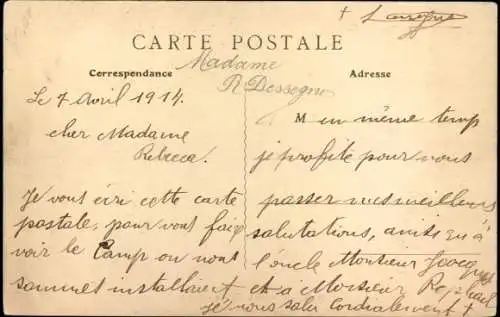 CARTE POSTALE
Madame
R Dessogne
Correspondance
Adresse
Le 7 Avril 1914.
cher Madame
Rebeca.
Je vous écri cette carte
postale, pour vous faire
voir le Camp ou nous
sommes installaient
M en même temp
je profite pour vous
passer mes meilleurs
salutations, ainsi qu'à
l'oncle Monsieur
et à Monsieur Raphael
je vous salu Cordialement +